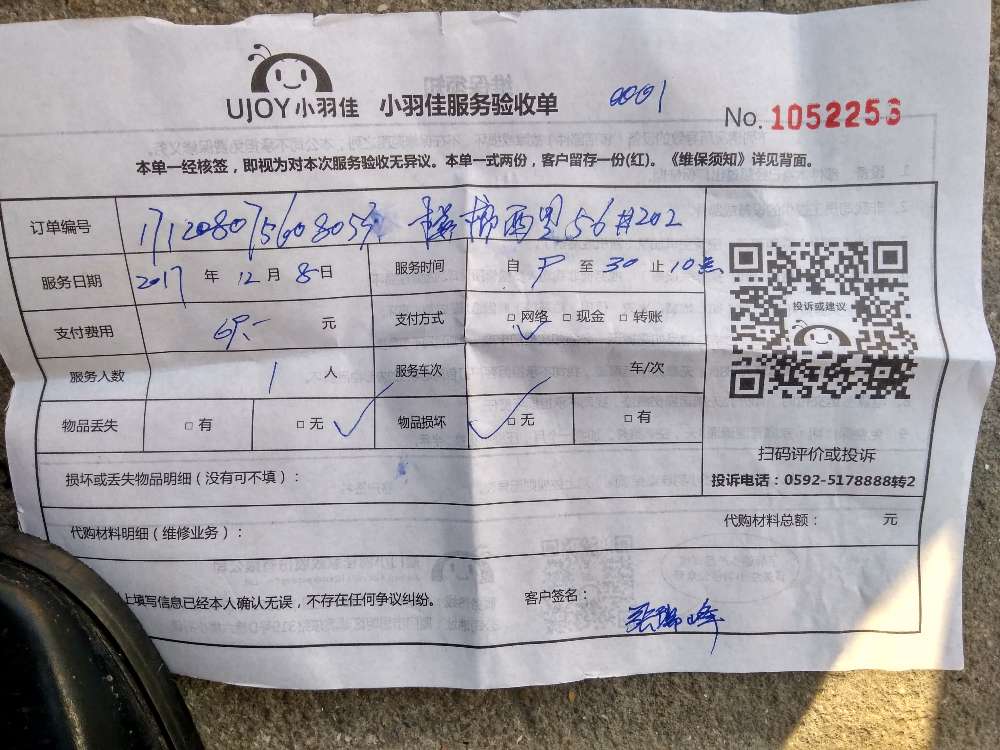 UJOY小羽佳 小羽佳服务验收单 0001
No. 1052253
本单一经核签，即视为对本次服务验收无异议。本单一式两份，客户留存一份(红)。《维保须知》详见背面。
订单编号 56#202
服务日期 2017 年 12 月 8 日 服务时间 自 至 30 止 10点
支付费用 元 支付方式 □ 网络 □ 现金 □ 转账
投诉或建议
服务人数 1 人 服务车次 车/次
物品丢失 □ 有 □ 无 物品损坏 □ 无 □ 有
扫码评价或投诉
损坏或丢失物品明细（没有可不填）：
投诉电话：0592-5178888转2
代购材料明细（维修业务）：
代购材料总额： 元
上填写信息已经本人确认无误，不存在任何争议纠纷。 客户签名：